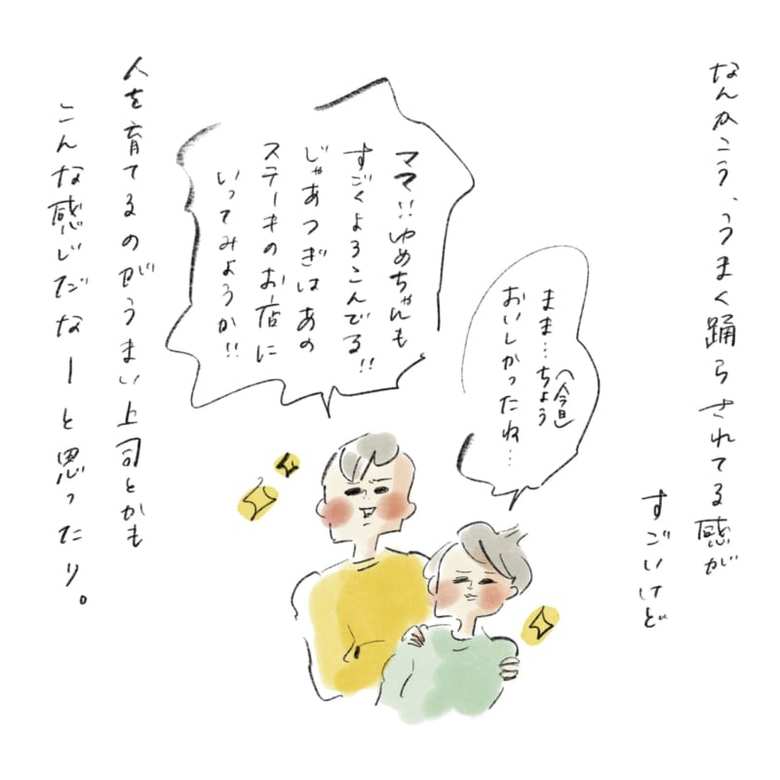 なんかこう、うまく踊らされてる感が
すごいけど
まま…ちょう
(今日)
おいしかったね…
ママ!!ゆめちゃんも
すごくよろこんでる!!
じゃあつぎはあの
ステーキのお店に
いってみようか!!
人を育てるのがうまい上司とかも
こんな感じだなーと思ったり。